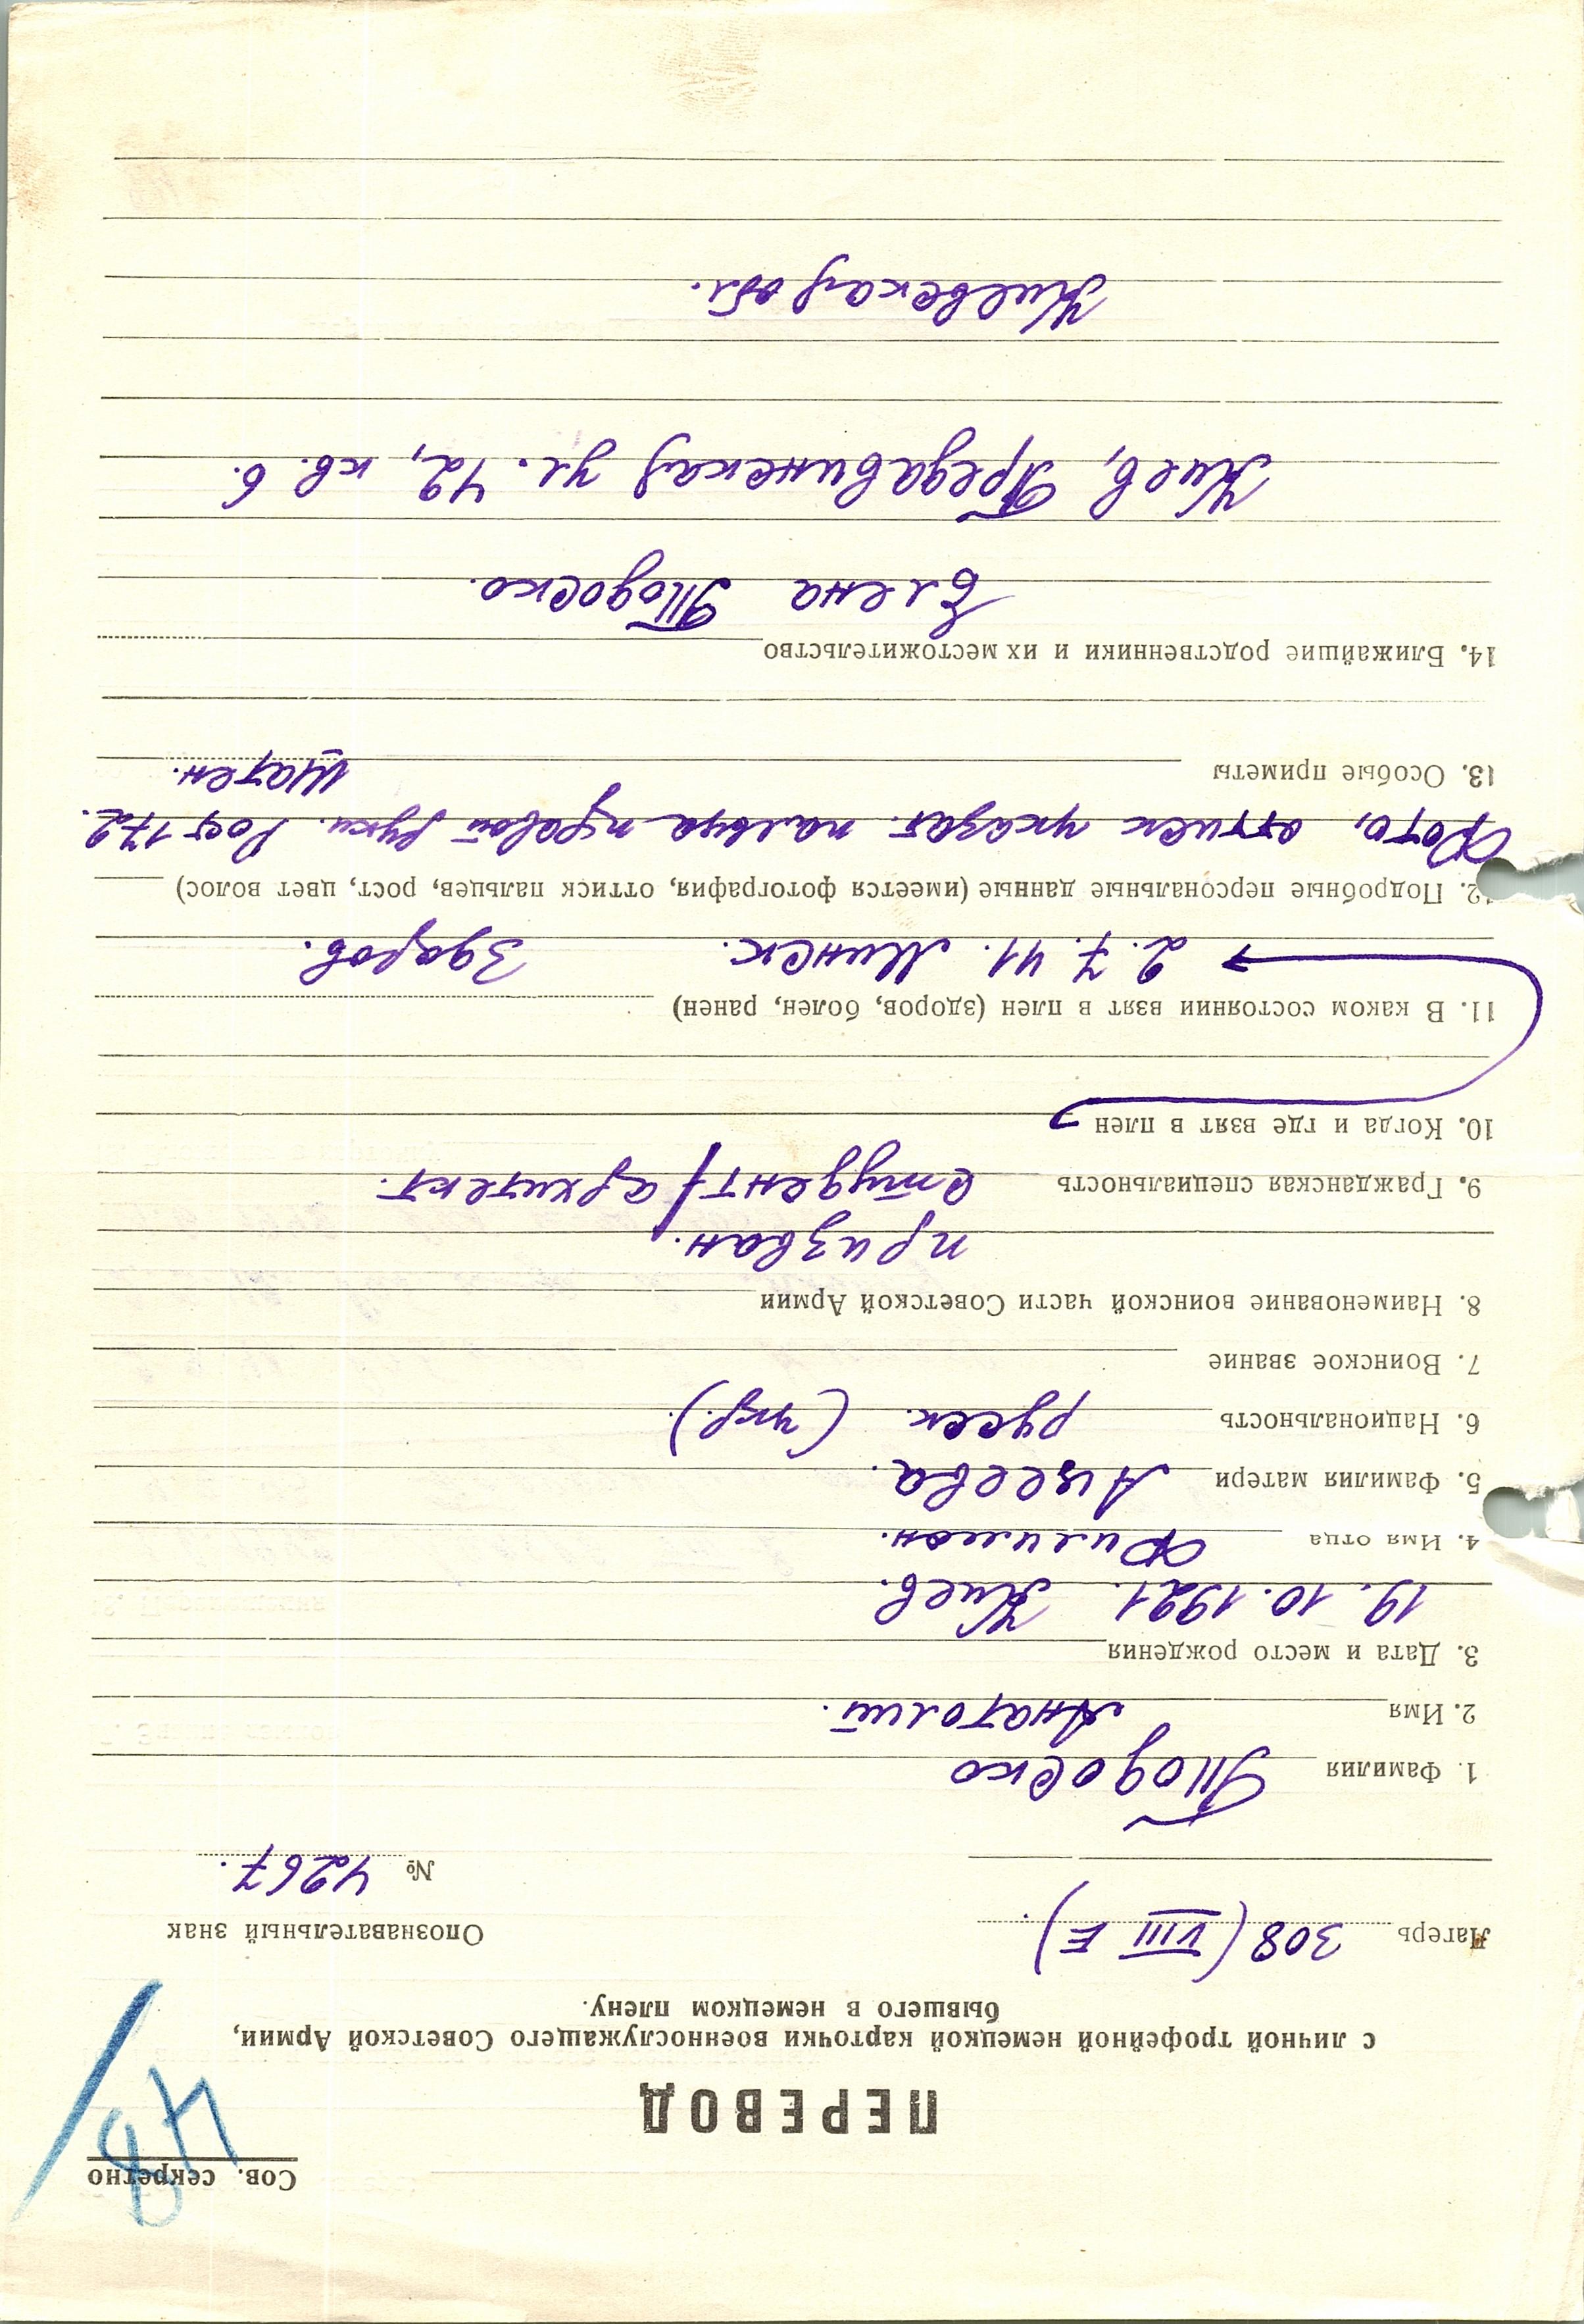 Сов. секретно
48/
ПЕРЕВОД
с личной трофейной немецкой карточки военнослужащего Советской Армии,
бывшего в немецком плену.
Лагерь 308 (VIII E). Опознавательный знак
№ 4267.
1. Фамилия Тодоско
2. Имя Анатолий.
3. Дата и место рождения
19.10.1921. Киев.
4. Имя отца Филимон.
5. Фамилия матери Ацеева.
6. Национальность русск. (укр.).
7. Воинское звание
8. Наименование воинской части Советской Армии
призван.
9. Гражданская специальность студент/архитект.
10. Когда и где взят в плен
11. В каком состоянии взят в плен (здоров, болен, ранен)
2.7.41. Минск. Здоров.
12. Подробные персональные данные (имеется фотография, оттиск пальцев, рост, цвет волос)
Фото, оттиск указат. пальца правой руки. Рост 172.
13. Особые приметы шатен.
14. Ближайшие родственники и их местожительство
Елена Тодоско.
Киев, Предславинская ул. 42, кв. 6.
Киевская обл.